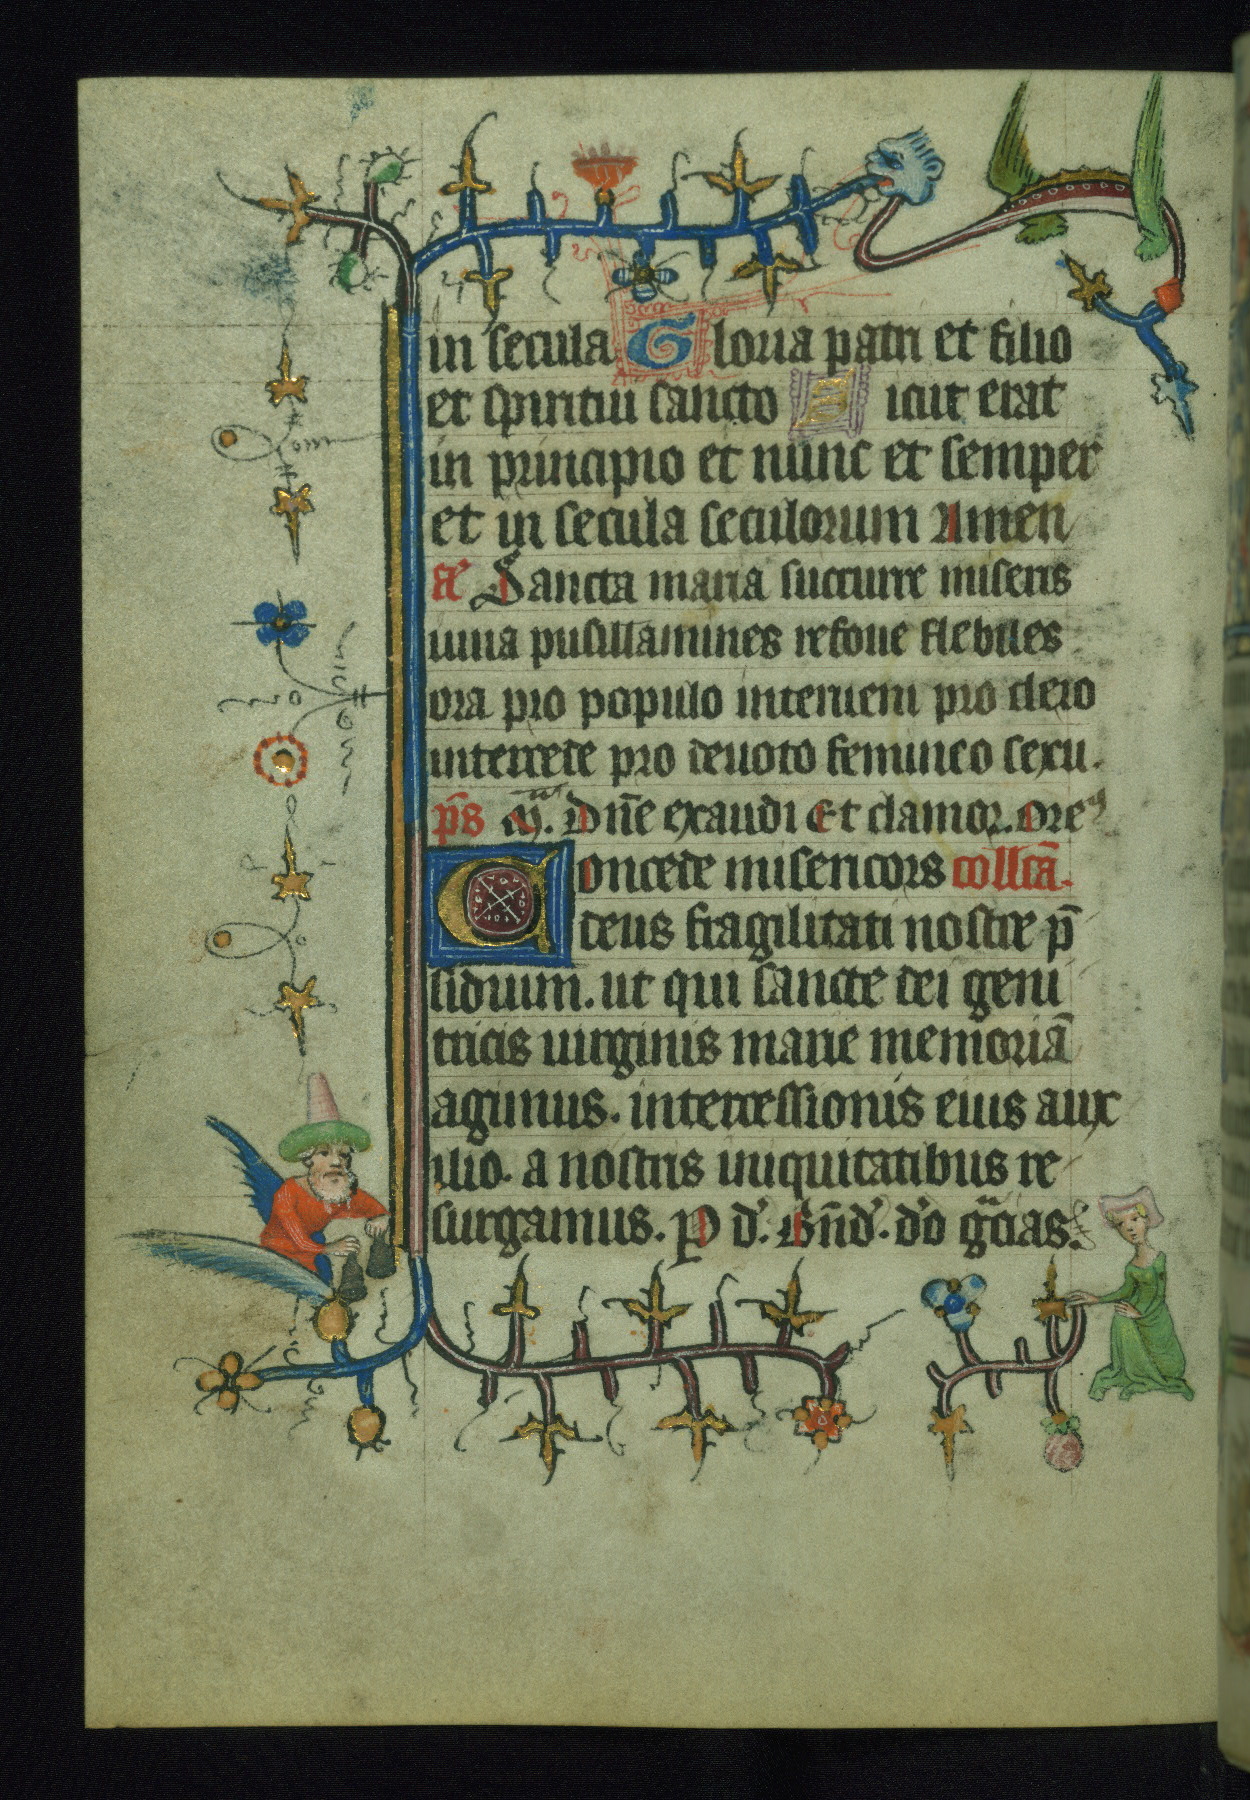 in secula Gloria patri et filio
et spiritui sancto Sicut erat
in principio et nunc et semper
et in secula seculorum Amen
añ Sancta maria succurre miseris
iuua pusillamines refoue flebiles
ora pro populo interueni pro clero
intercede pro deuoto femineo sexu.
ps̄ Dn̄e exaudi Et clamor. Ore
Concede misericors coll̄cā.
deus fragilitati nostre p̄
sidium. ut qui sancte dei geni
tricis uirginis marie memoriā
agimus. intercessionis eius aux
ilio. a nostris iniquitatibus re
surgamus. P d'. Bn̄d'. d'o gr̄cias.